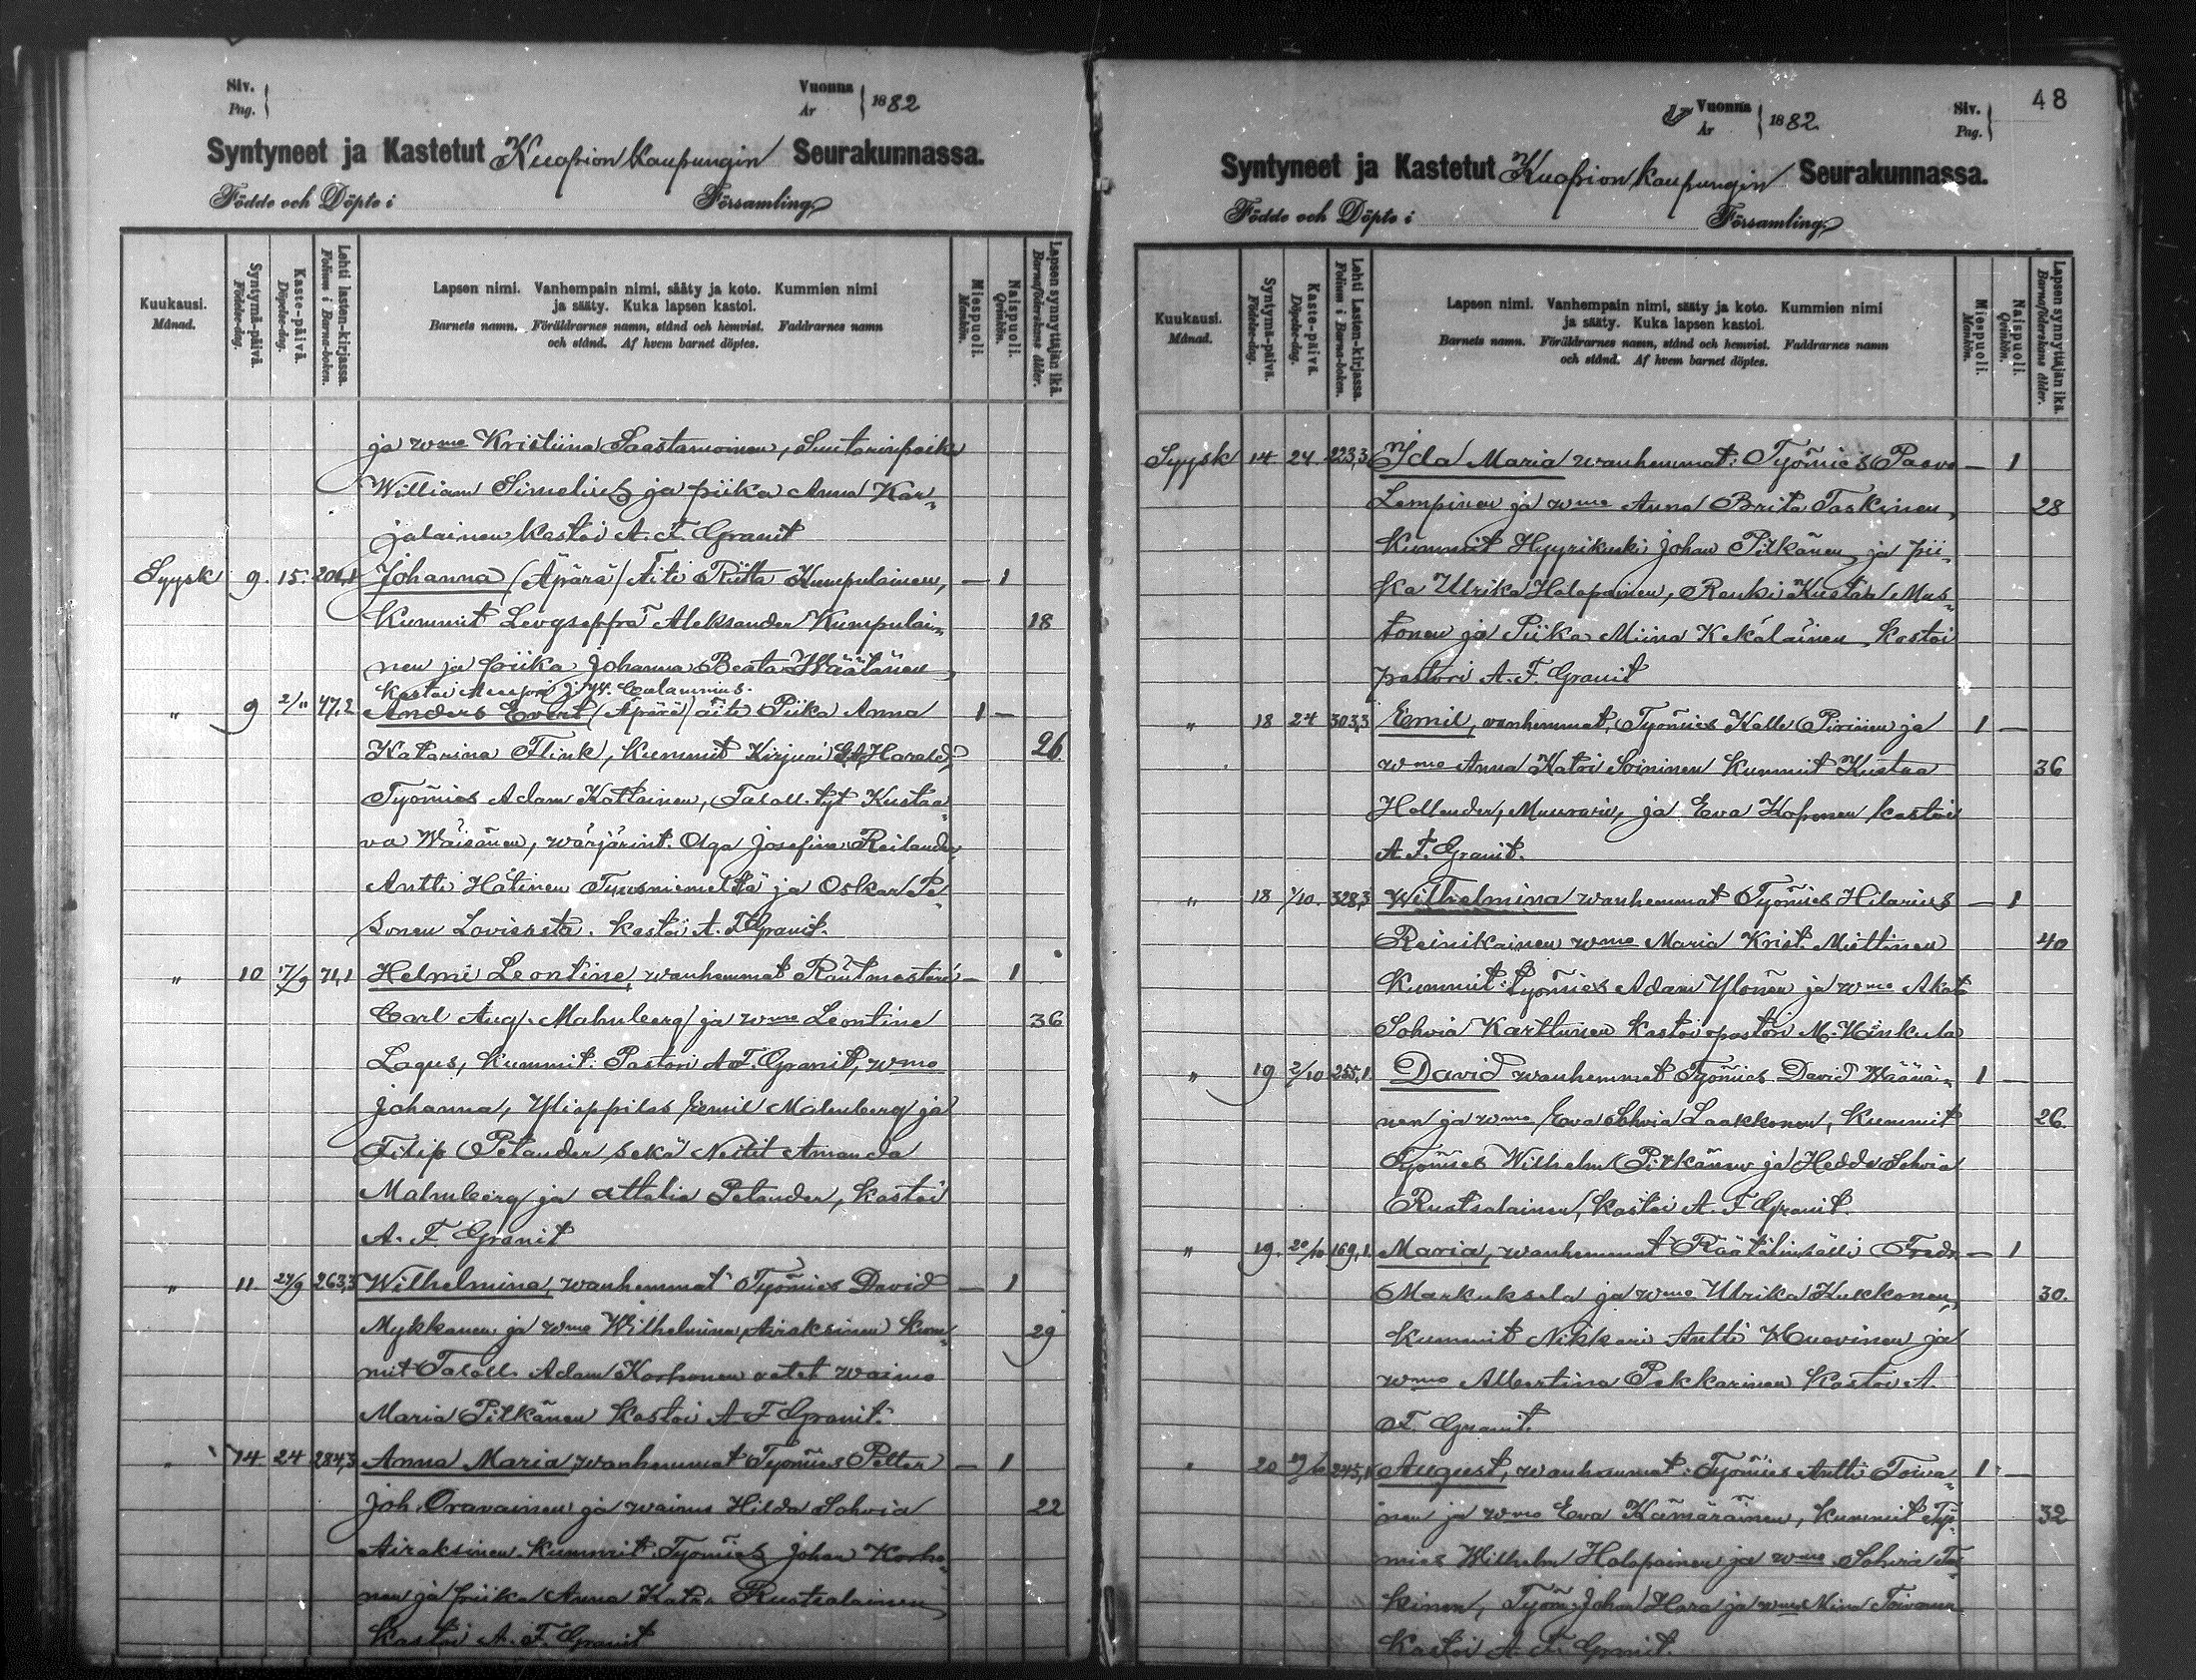 Siv.
Pag.
Vuonna
År
1882
Syntyneet ja Kastetut Kuopion kaupungin Seurakunnassa.
Födde och Döpte i Församling.
Kuukausi.
Månad.
Syntymä-päivä.
Födelse-dag.
Kaste-päivä.
Döpelse-dag.
Lehti lasten-kirjassa.
Folium i Barna-boken.
Lapsen nimi. Vanhempain nimi, sääty ja koto. Kummien nimi
ja sääty. Kuka lapsen kastoi.
Barnets namn. Föräldrarnes namn, stånd och hemvist. Faddrarnes namn
och stånd. Af hvem barnet döptes.
Miespuoli.
Mankön.
Naispuoli.
Qvinkön.
Lapsen synnyttäjän ikä.
Barnaföderskans ålder.
ja wmo Kristiina Saastamoinen, Suutarinpoika
William Simelius ja piika Anna Kar„
jalainen kastoi A. F. Granit
Syysk 9. 15. 206,1 Johanna (Äpärä) Äiti Riitta Kumpulainen, — 1
Kummit Levgseppä Aleksander Kumpulai„ 18
nen ja piika Johanna Beata Väätänen,
kastoi J. W. Calamnius.
„ 9 2/11 47,2 Anders Evert (Äpärä) äiti Piika Anna 1 —
Katarina Flink, Kummit Kirjuri Harald, 26
Työmies Adam Kottainen, Taloll. tyt Kustaa„
va Wäisänen, wärjärint. Olga Josefina Reilander,
Antti Hätinen Tuusniemeltä ja Oskar Pe„
sonen Loviisasta. kastoi A. F. Granit.
„ 10 17/9 71,1 Helmi Leontine, wanhemmat Räntmestari — 1
Carl Aug. Malmberg ja wmo Leontine 36
Lagus, Kummit: Pastori A F. Granit, wmo
Johanna, Ylioppilas Emil Malmberg ja
Filip Petander sekä Neitit Amanda
Malmberg ja Attalia Petander, kastoi
A. F. Granit
„ 11. 24/9 263,3 Wilhelmina, wanhemmat Työmies David — 1
Mykkänen ja wmo Wilhelmina Airaksinen kum„ 29
mit Taloll. Adam Korhonen waimo
Maria Pitkänen kastoi A F Granit.
„ 14. 24 284,3 Anna Maria wanhemmat Työmies Petter — 1
Joh. Oravainen ja waimo Hilda Sohvia 22
Airaksinen. Kummit: Työmies Johan Korho„
nen ja piika Anna Katr. Ruotsalainen
kastoi A. F. Granit
48
Vuonna
År
1882
Siv.
Pag.
Syntyneet ja Kastetut Kuopion kaupungin Seurakunnassa.
Födde och Döpte i Församling.
Kuukausi.
Månad.
Syntymä-päivä.
Födelse-dag.
Kaste-päivä.
Döpelse-dag.
Lehti Lasten-kirjassa.
Folium i Barna-boken.
Lapsen nimi. Vanhempain nimi, sääty ja koto. Kummien nimi
ja sääty. Kuka lapsen kastoi.
Barnets namn. Föräldrarnes namn, stånd och hemvist. Faddrarnes namn
och stånd. Af hvem barnet döptes.
Miespuoli.
Mankön.
Naispuoli.
Qvinkön.
Lapsen synnyttäjän ikä.
Barnaföderskans ålder.
Syysk 14 24. 223,3 Ida Maria wanhemmat: Työmies Paavo — 1
Lempinen ja wmo Anna Brita Taskinen, 28
Kummit Hyyrikuski Johan Pitkänen ja pii„
ka Ulrika Holopainen, Renki Kustaa Mus„
tonen ja Piika Miina Kekäläinen, kastoi
pastori A. F. Granit
„ 18 24 303,3 Emil, wanhemmat, Työmies Kalle Piriinen ja 1 —
wmo Anna Katri Soininen Kummit Kustaa 36
Hollender, Muurari, ja Eva Koponen kastoi
A. F. Granit.
„ 18 1/10. 328,3 Wilhelmina wanhemmat Työmies Hilarius — 1
Reinikainen wmo Maria Krist. Miettinen 40
Kummit: työmies Adam Ylönen ja wmo Akat
Sohvia Karttunen kastoi pastori M. Hinkula
„ 19 2/10 255,1 David wanhemmat Työmies David Väänä„ 1 —
nen ja wmo Eva Sohvia Laakkonen, Kummit 26.
Työmies Wilhelm Pitkänen ja Hedda Sohvia
Ruotsalainen, kastoi A. F Granit.
„ 19. 20/10 169,1 Maria, wanhemmat Räätälinsälli Fredr — 1
Markuksela ja wmo Ulrika Kukkonen, 30.
Kummit Nikkari Antti Kuovinen ja
wmo Albertina Pekkarinen kastoi A.
F. Granit.
„ 20 245,1 August, wanhemmat: Työmies Antti Toiva„ 1 —
nen ja wmo Eva Kämäräinen, Kummit Työ„ 32
mies Wilhelm Holopainen ja wmo Sohvia Tas„
kinen, Työm. Johan Hara ja wmo Mina Toivanen
kastoi A. F. Granit.